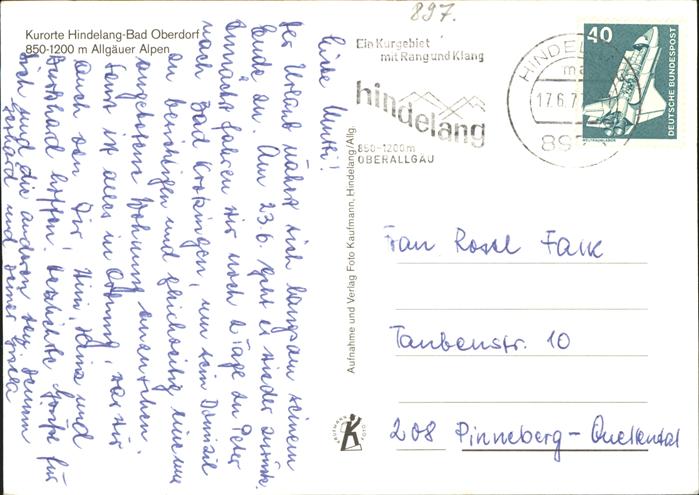 897.
Kurorte Hindelang-Bad Oberdorf
850-1200 m Allgäuer Alpen
Liebe Mutti!
Der Urlaub nähert sich langsam seinem
Ende zu. Am 23.6. geht es wieder zurück.
Zunächst fahren wir noch 2 Tage zu Peter
nach Bad Krozingen, um sein Domizil
zu besichtigen und gleichzeitig eine uns
angebotene Wohnung anzusehen.
Sonst ist alles in Ordnung, was wir
auch von Dir, Heinz und
Burkhard hoffen. Herzliche Grüße für
Dich und die anderen von Deinem
Gerhard und Deiner
Aufnahme und Verlag Foto Kaufmann, Hindelang/Allg.
KAUFMANN FOTO
Ein Kurgebiet
mit Rang und Klang
hindelang
850-1200m
OBERALLGÄU
HINDEL
17.6.7
897
40
DEUTSCHE BUNDESPOST
WELTRAUMLABOR
Frau Rosel Falk
Taubenstr. 10
208 Pinneberg-Quellental